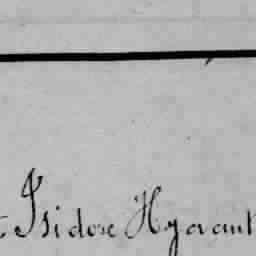 Isidore Hyacint